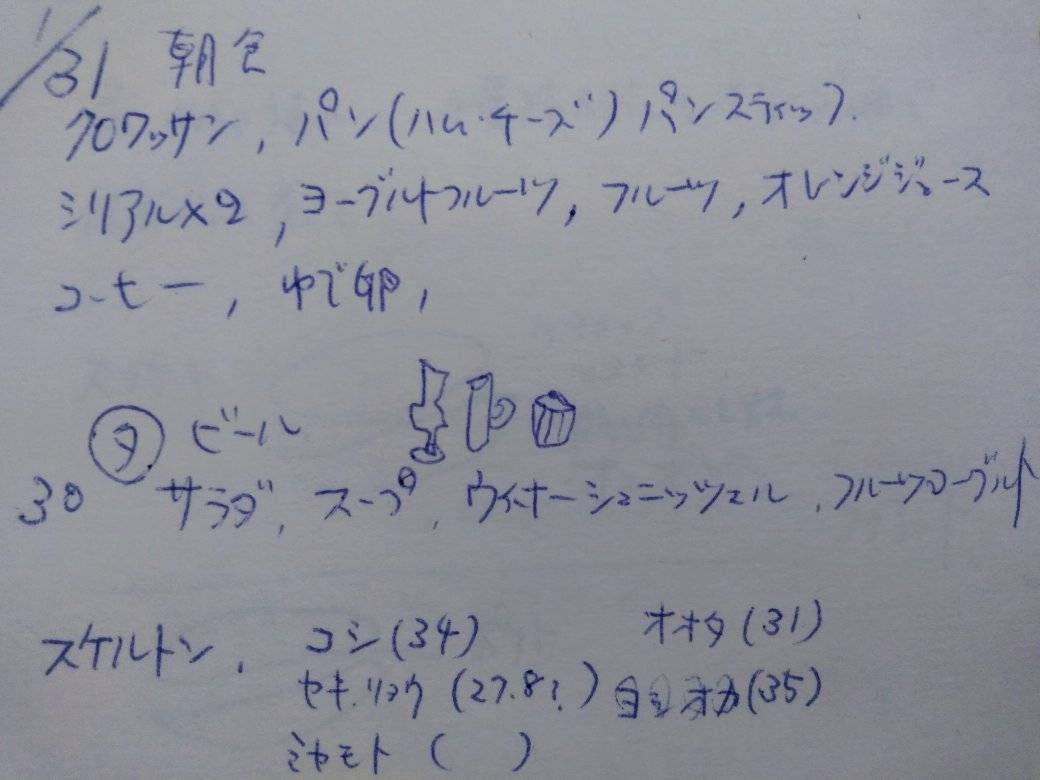 1/31 朝食
クロワッサン, パン(ハム・チーズ) パンスティック.
シリアル×2, ヨーグルトフルーツ, フルーツ, オレンジジュース
コーヒー, ゆで卵,
夕 ビール
30 サラダ, スープ, ウィナーシュニッツェル, フルーツヨーグルト
スケルトン. コシ(34) オオタ(31)
セキ.リョウ(27.8?) ヨシオカ(35)
ミヤモト( )